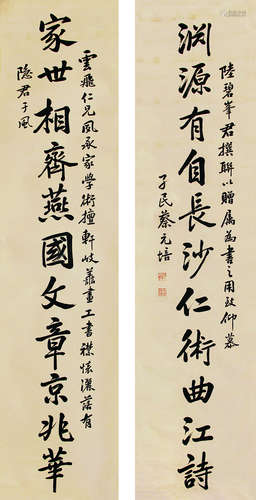 陸碧峯君撰聯以贈屬為書之用致仰慕
渊源有自長沙仁術曲江詩
孑民蔡元培
雲飛仁兄夙承家學術擅軒岐畫工書襟懷灑落有
家世相齊燕國文章京兆華
隱君子風